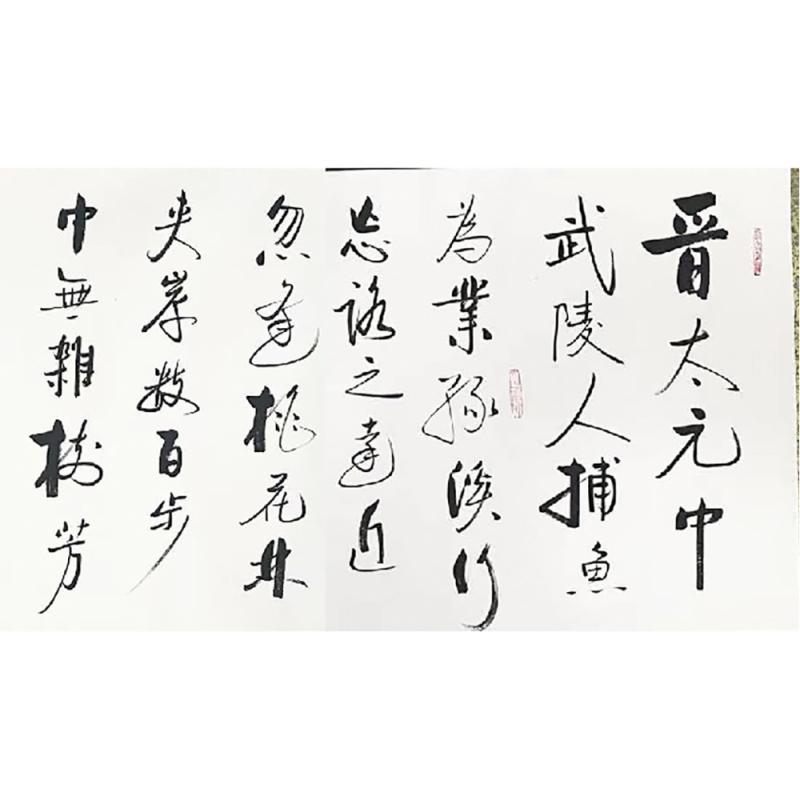 晋太元中
武陵人捕魚
為業緣溪行
忘路之遠近
忽逢桃花林
夾岸數百步
中無雜樹芳